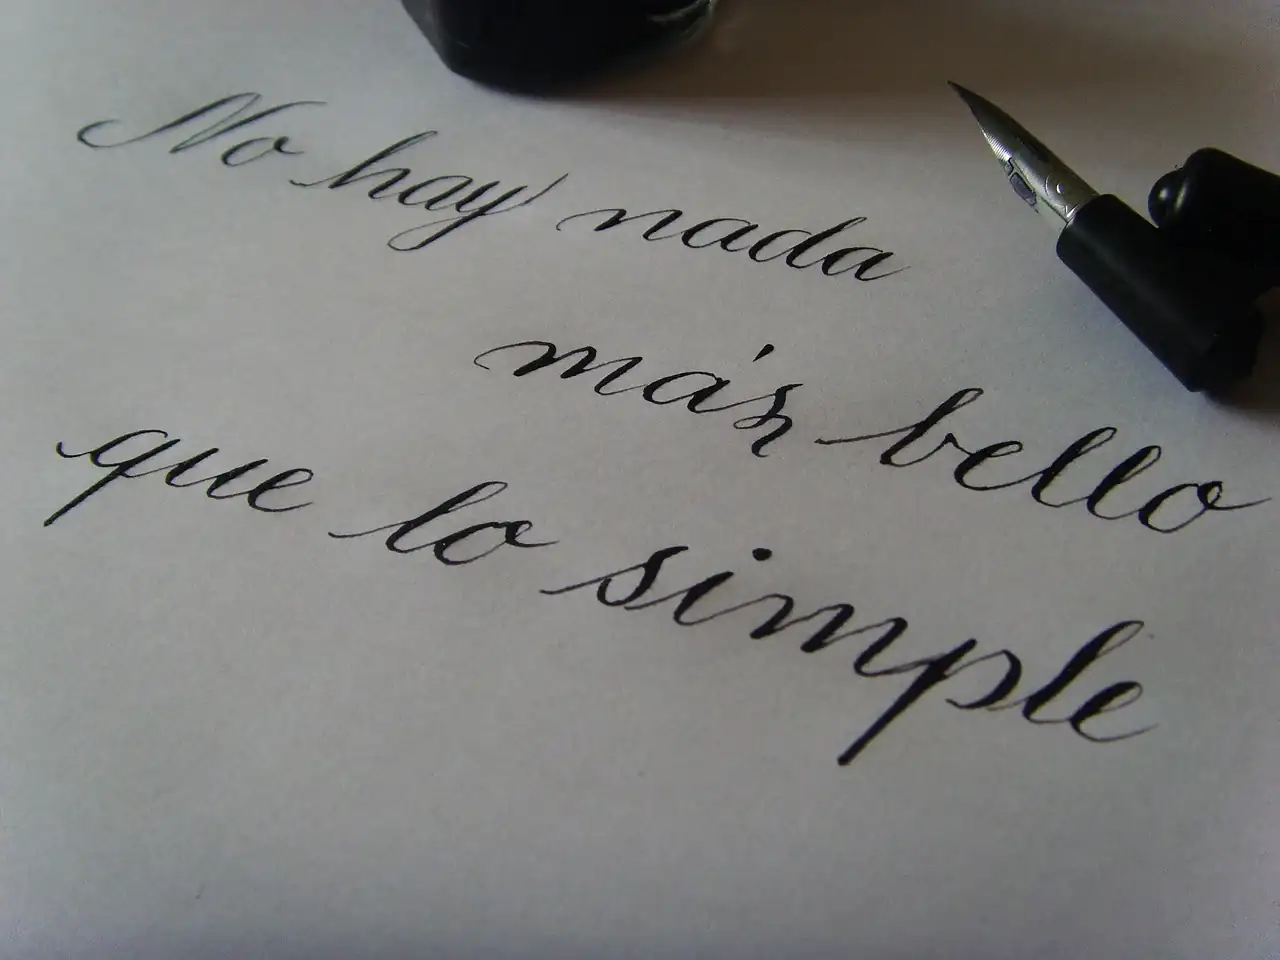 No hay nada
más bello
que lo simple